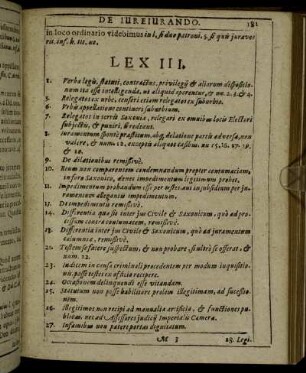 DE IUREIURANDO. 181
in loco ordinario videbimus in l. si duo patroni. 3. si quis juraverit inf. h. tit. ne.
LEX III.
1. Verba legis, statuti, contractus, privilegij & aliarum dispositionum ita esse intelligenda, ne aliquid operentur, & nu. 2. 3. & 4.
5. Relegatos ex urbe, censeri etiam relegatos ex suburbio.
6. Urbis appellatione contineri suburbium.
7. Relegatos in terris Saxoniæ, relegari ex omnibus locis Electori subjectis, & puniri, si redeant.
8. Iuramentum sponte præstitum, absq; delatione partis adversæ, non valere, & num. 12. exceptis aliquot casibus. nu. 15. 16. 17. 19. & 20.
9. De dilationibus remissivè.
10. Reum non comparentem condemnandum propter contumaciam, in foro Saxonico, docere impedimentum legitimum probet.
11. Impedimentum probandum esse per testes, aut in subsidium per juramentum allegantis impedimentum.
12. De impedimentis remissivè.
14. Differentia quæ sit inter jus Civile & Saxonicum, quò ad processum contra contumacem, remissivè.
18. Differentia inter jus Civile & Saxonicum, quò ad juramentum calumniæ, remissivè.
21. Testem se facere suspectum, & non probare, si ultrò se offerat. & num. 22.
23. Iudicem in causa criminali procedentem per modum inquisitionis, posse testes ex officio recipere.
24. Occasionem delinquendi esse vitandam.
25. Statutum non posse habilitare prolem illegitimam, ad successionem.
26. Illegitimos non recipi ad manualia artificia, & functiones publicas. nec ad Assessores judicij Imperialis Cameræ.
27. Infamibus non patere portas dignitatum.
M 3 28. Legi-